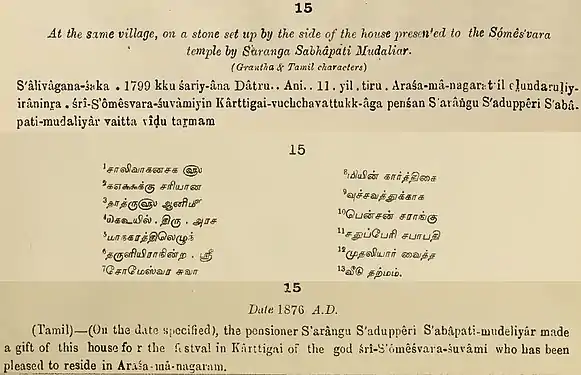 15
At the same village, on a stone set up by the side of the house presented to the Sómês'vara
temple by S'aranga Sabhâpati Mudaliar.
(Grantha & Tamil characters)
S'âlivâgana-śaka . 1799 kku śariy-âna Dâtru.. Ani.. 11. yil . tiru . Araśa-mâ-nagarat-til eḷundaruḷiy-
irâninṛa . śrî-S'ômêsvara-śuvâmiyin Kârttigai-vuchchavattukk-âga penśan S'arângu S'aduppêri S'abâ-
pati-mudaliyâr vaitta vîḍu taṛmam
15
1சாலிவாகனசக
2ககூசுக்கு சரியான
3தாத்ரு ஆனி
4கெஉயில் . திரு . அரச
5மாநகரத்திலெழுந்
6தருளியிராநின்ற . ஸ்ரீ
7சோமேஸ்வர சுவா
8மியின் கார்த்திகை
9வுச்சவத்துக்காக
10பென்சன் சராங்கு
11சதுப்பேரி சபாபதி
12முதலியார் வைத்த
13வீடு தற்மம்.
15
Date 1876 A.D.
(Tamil)—(On the date specified), the pensioner S'arângu S'aduppêri S'abâpati-mudeliyâr made
a gift of this house for the festval in Kârttigai of the god śri-S'ômêsvara-śuvâmi who has been
pleased to reside in Araśa-mâ-nagaram.